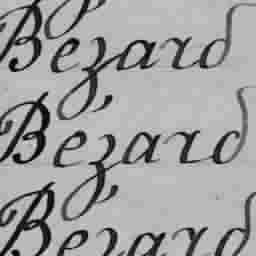 Bezard
Bezard
Bezard